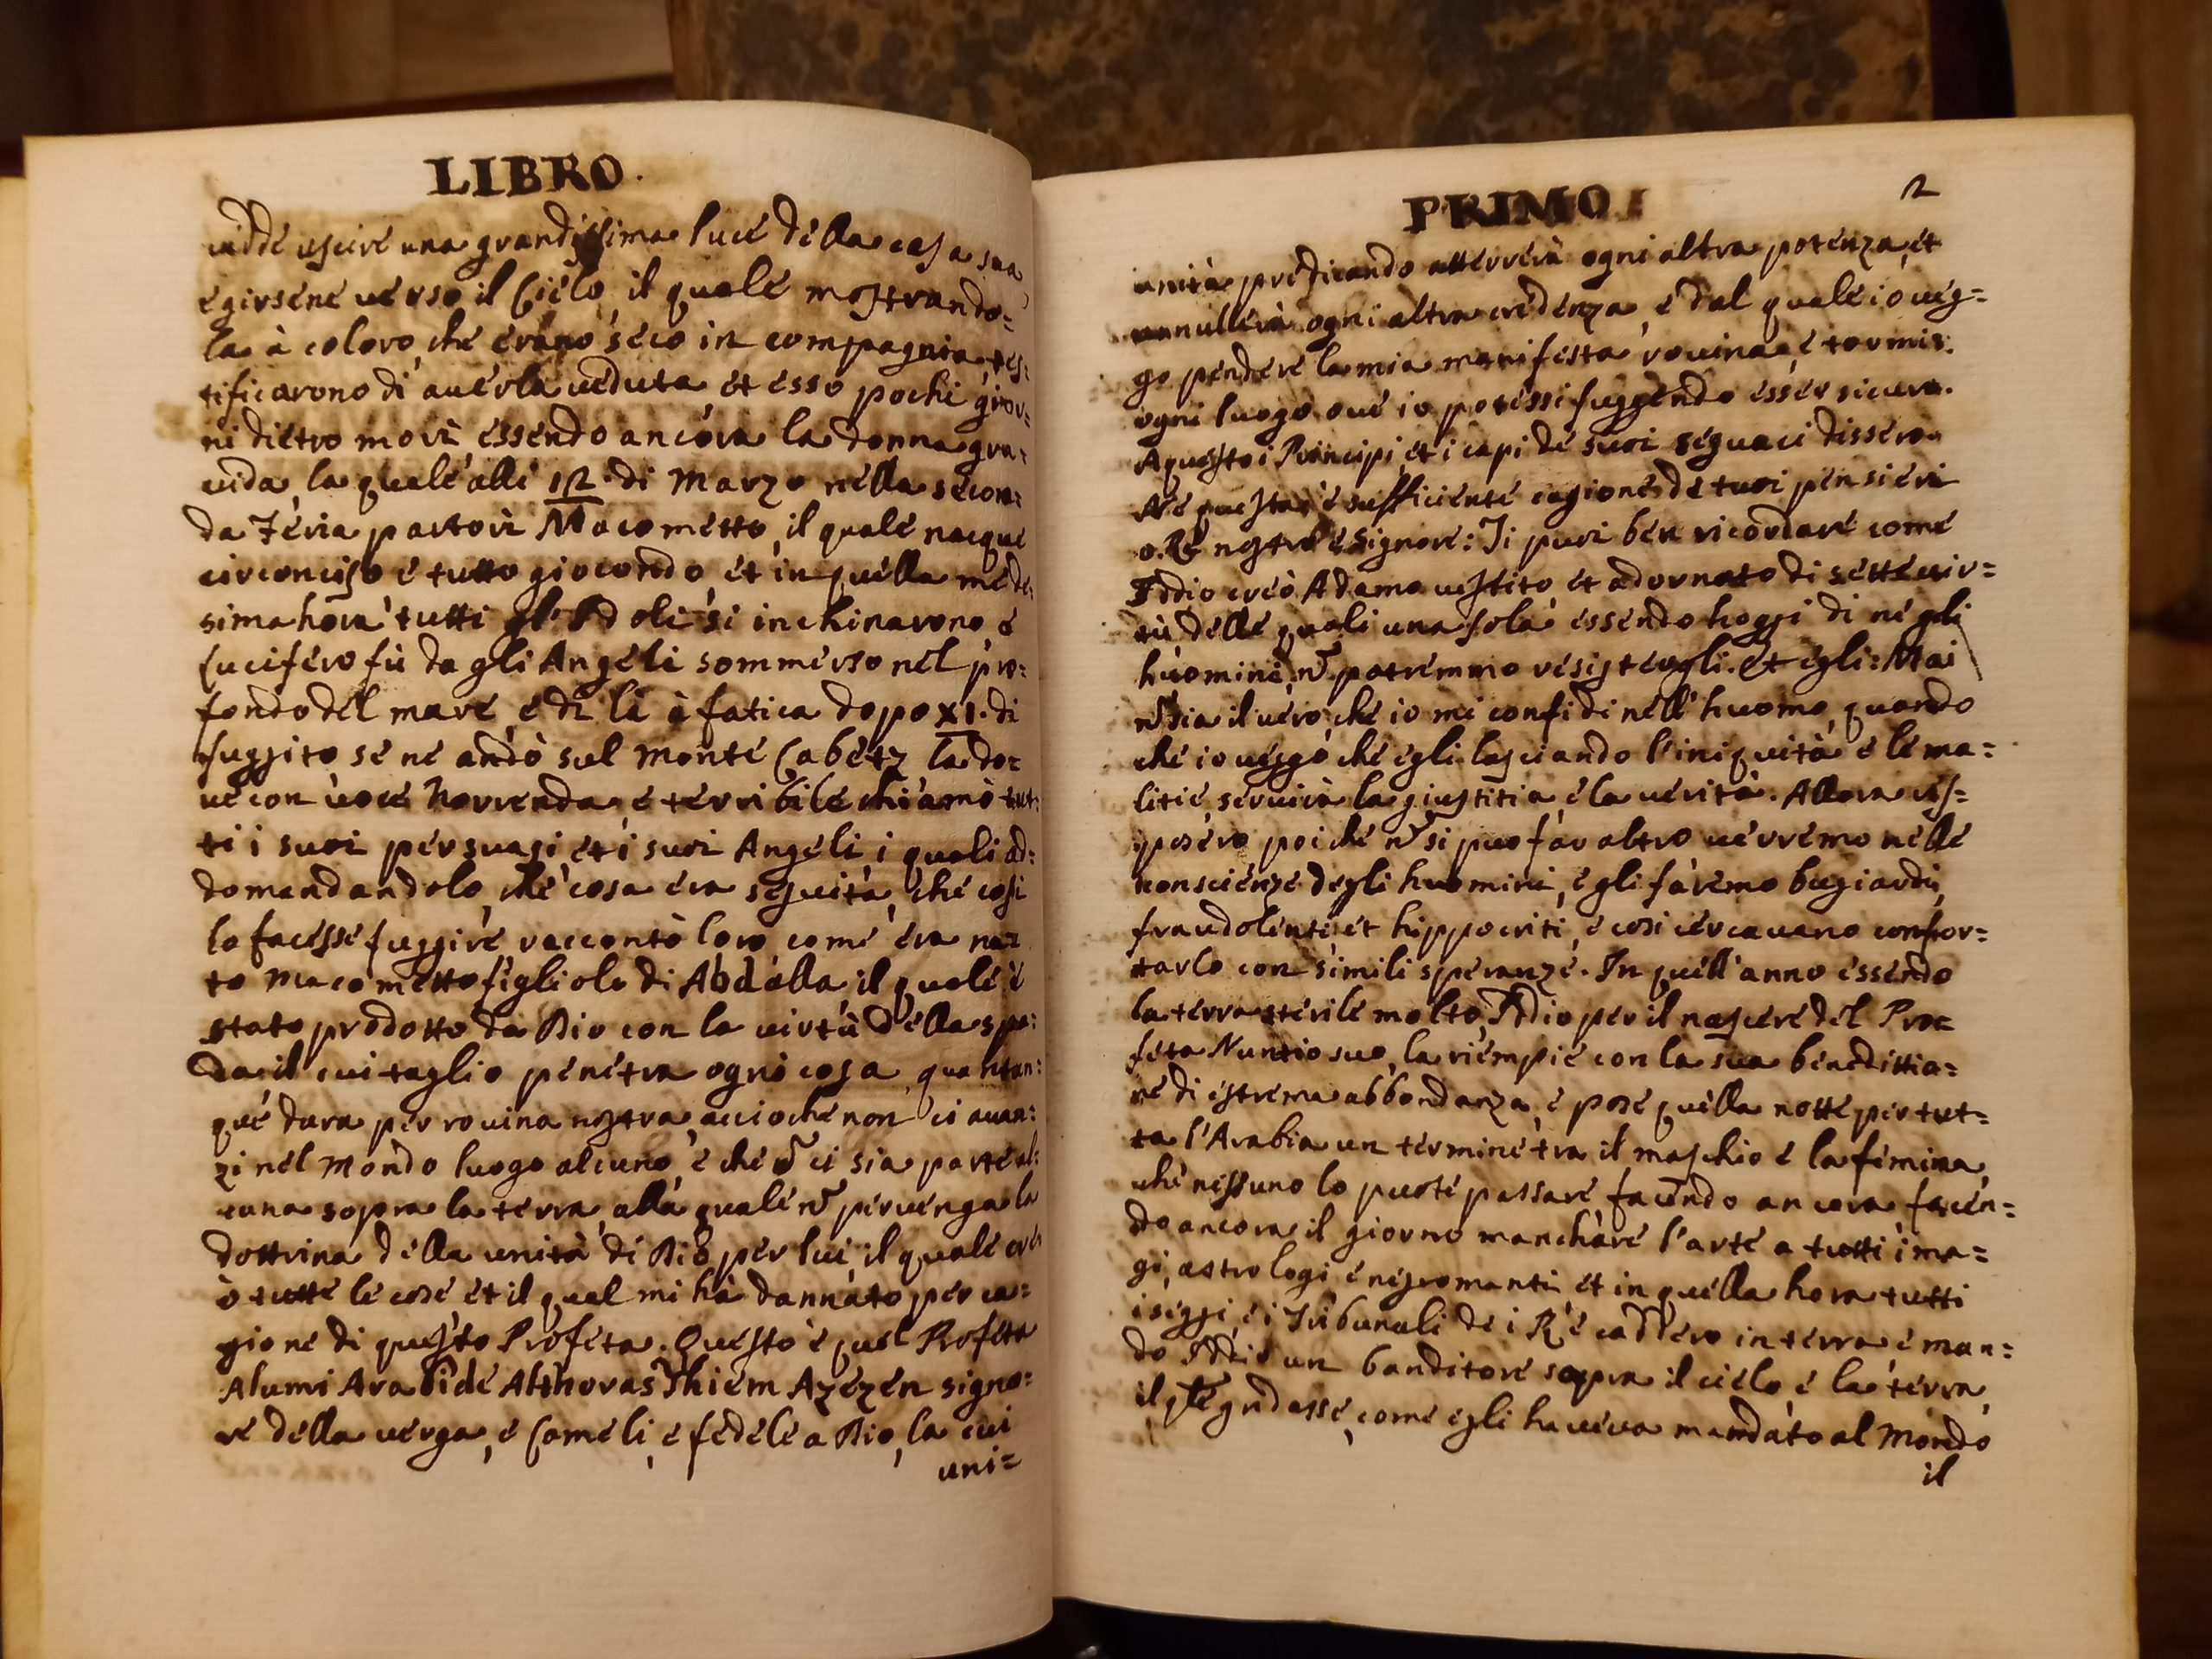 LIBRO.
uidde uscire una grandissima luce della casa sua
e girsene uerso il Cielo, il quale mostrando=
la à coloro, che erano seco in compagnia, tes=
tificarono di auerla ueduta, et esso pochi gior=
ni dietro morì, essendo ancora la donna gra=
uida, la quale alli 12. di Marzo nella secon=
da Feria partorì Macometto, il quale nacque
circonciso e tutto giocondo, et in quella mede=
sima hora tutti gl'Idoli si inchinarono, e
Lucifero fù da gli Angeli sommerso nel pro=
fondo del mare, e di là à fatica dopo XI. dì
fuggito se ne andò sul monte Cabetz la do=
ue con uoce horrenda, e terribile chiamò tut=
ti i suoi persuasi, et i suoi Angeli, i quali ad=
domandandolo, che cosa era seguita, che così
lo facesse fuggire raccontò loro, come era na=
to Macometto figliolo di Abdalla, il quale è
stato prodotto da Dio con la uirtù della spa=
da il cui taglio penetra ogni cosa, quantun=
que dura per rouina nostra, acciochè non ci auan=
zi nel Mondo luogo alcuno, e che nõ ci sia parte al=
cuna sopra la terra, alla quale nõ peruenga la
dottrina della unità di Dio per lui, il quale cre
ò tutte le cose, et il qual mi hà dannato per ca=
gione di questo Profeta. Questo è quel Profeta
Alumi Arabi de Althoras Thiem Azezen signo=
re della uerga, e Cameli, e fedele a Dio, la cui
uni=
PRIMO 2
unità predicando atterrerà ogni altra potenza, et
annullerà ogni altra credenza, e dal quale io ueg=
go pendere la mia manifesta rouina, e tormi
ogni luogo oue io potessi fuggendo esser sicura.
A questo i Principi, et i capi de suoi seguaci dissero.
Ne questa è sufficiente cagione de tuoi pensieri
o Rè nostro e Signore: Ti puoi ben ricordare come
Iddio creò Adamo uestito, et adornato di sette uir=
tù delle quali una sola essendo hoggi dì ne gli
huomini, nõ potremmo resistergli. Et egli: Mai
nõ sia il uero, che io mi confidi nell'huomo, quando
che io ueggo che egli lasciando l'iniquità e le ma=
litie, seruirà la giustitia, e la uerità. Allora ris=
posero poi che nõ si può far altro uerremo nelle
conscienze degli huomini, e gli faremo bugiardi,
fraudolenti, et hippocriti, e così cercauano confor=
tarlo con simili speranze. In quell'anno essendo
la terra sterile molto, Iddio per il nascere del Pro=
feta Nuntio suo, la riempiè con la sua benedittio=
ne di estrema abbondanza, e pose quella notte per tut=
ta l'Arabia un termine tra il maschio e la femina,
che nissuno lo puote passare, facendo ancora facen=
do ancora il giorno manchare l'arte a tutti i ma=
gi, astrologi, e negromanti, et in quella hora tutti
i seggi, e i Tribunali de i Rè caddero in terra, e man=
dò Iddio un banditore sopra il cielo, e la terra,
il qle gridasse, come egli haueua mandato al Mondo
il